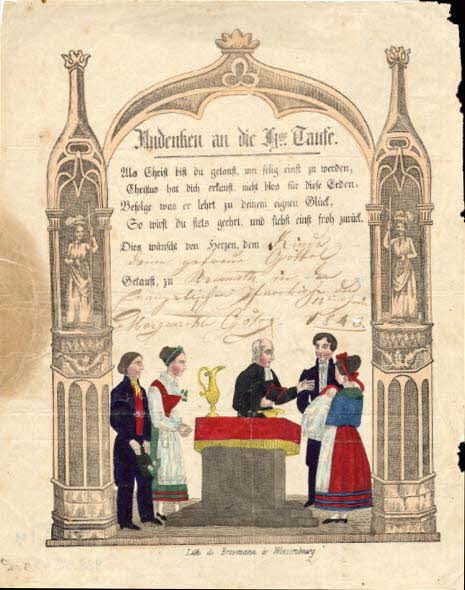 Andenken an die Hge. Taufe.
Als Christ bist du getauft, um selig einst zu werden;
Christus hat dich erkauft, nicht blos für diese Erden.
Befolge was er lehrt zu deinem eignen Glück,
So wirst du stets geehrt, und siehst einst froh zurück.
Dies wünscht von Herzen, dem Kinde
dein getreue Göttel
Getauft, zu in der
Evangelischen Pfarrkirche den
Margaretha 1843.
Lith. de Brosmann à Wissembourg